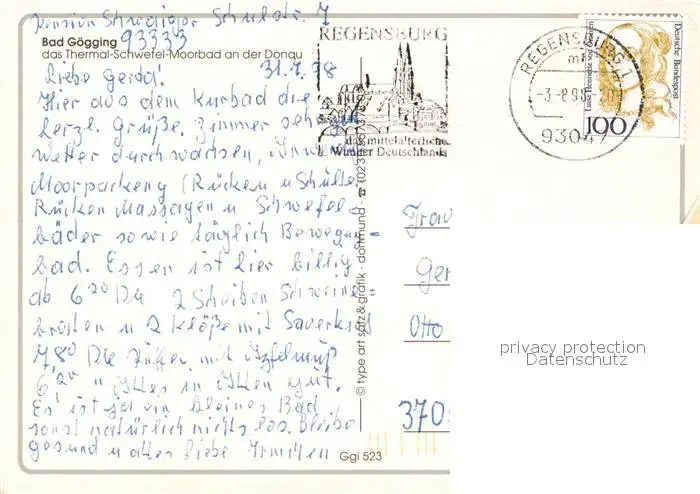 Pension Schweiger Schulstr. 7
93333
Bad Gögging
das Thermal-Schwefel-Moorbad an der Donau
Liebe Gerda! 31.7.98
Hier aus dem Kurbad die
herzl. Grüße. Zimmer sehr gut
Wetter durchwachsen,
Moorpackung (Rücken u Schulter
Rücken Massagen u Schwefel-
bäder sowie täglich Bewegungs=
bad. Essen ist hier billig
ab 6 20 DM 2 Scheiben Schweine=
braten u 2 Klöße mit Sauerkraut
7,80 DM Puffer mit Apfelmuß
6,20 " Alles in Allem gut.
Es ist ja ein kleines Bad
sonst natürlich nichts los. Bleibe
gesund u alles Liebe Irmchen
REGENSBURG
das mittelalterliche
Wunder Deutschlands
REGENSBURG 1
mf
-3.-8.98
93047
Deutsche Bundespost
100
© type art satz & grafik · dortmund · ☎ (023
Frau
Ger
Otto
370
Ggi 523
privacy protection
Datenschutz